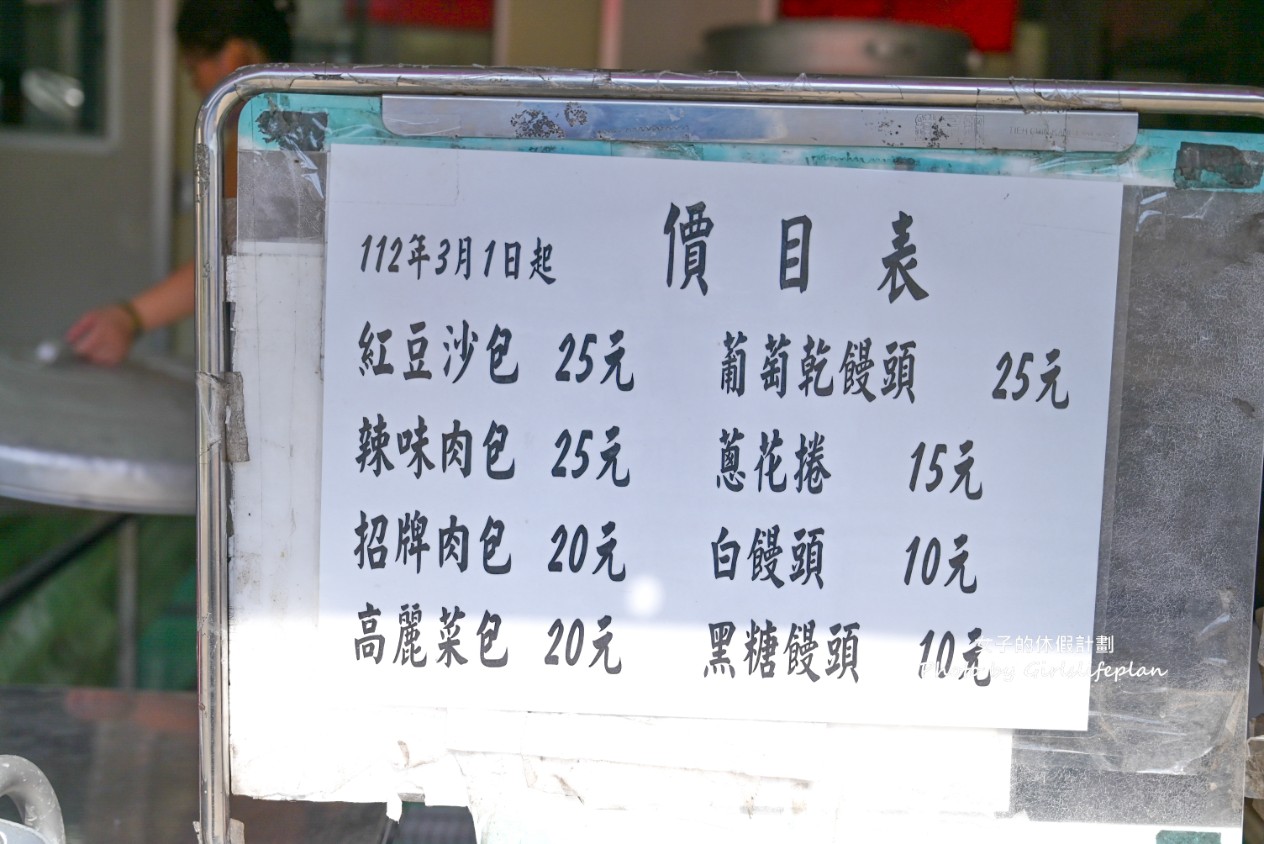 價目表
112年3月1日起
紅豆沙包 25元 葡萄乾饅頭 25元
辣味肉包 25元 蔥花捲 15元
招牌肉包 20元 白饅頭 10元
高麗菜包 20元 黑糖饅頭 10元
女子的休假計劃
Photo by Girlslifeplan